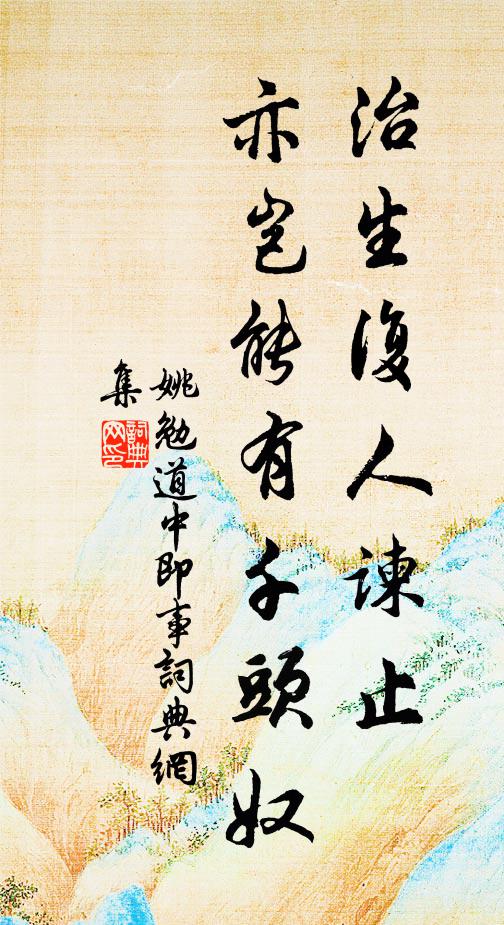 治生復人諫止
亦豈能有千頭奴
姚勉道中即事詞典網
集
詞典
网印